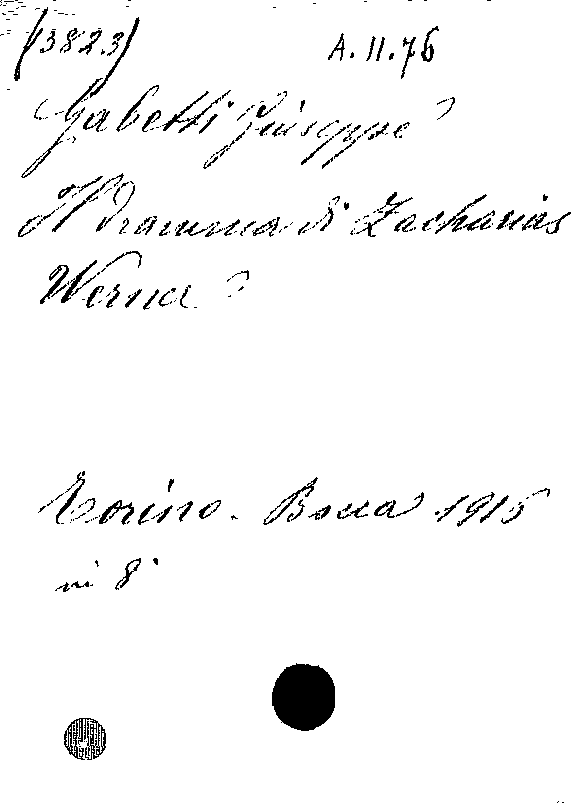 (3823) A.II.76
Gabetti Giuseppe
Il dramma di Zacharias
Werner
Torino. Bocca 1915
in 8°